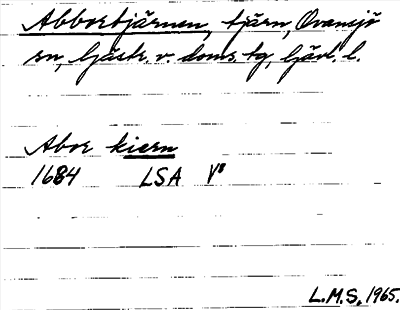 Abbortjärnen, tjärn, Ovansjö
sn, Gästr. v. doms. tg, Gävl. l.
Abor kiern
1684 LSA V⁸
L.M.S. 1965.